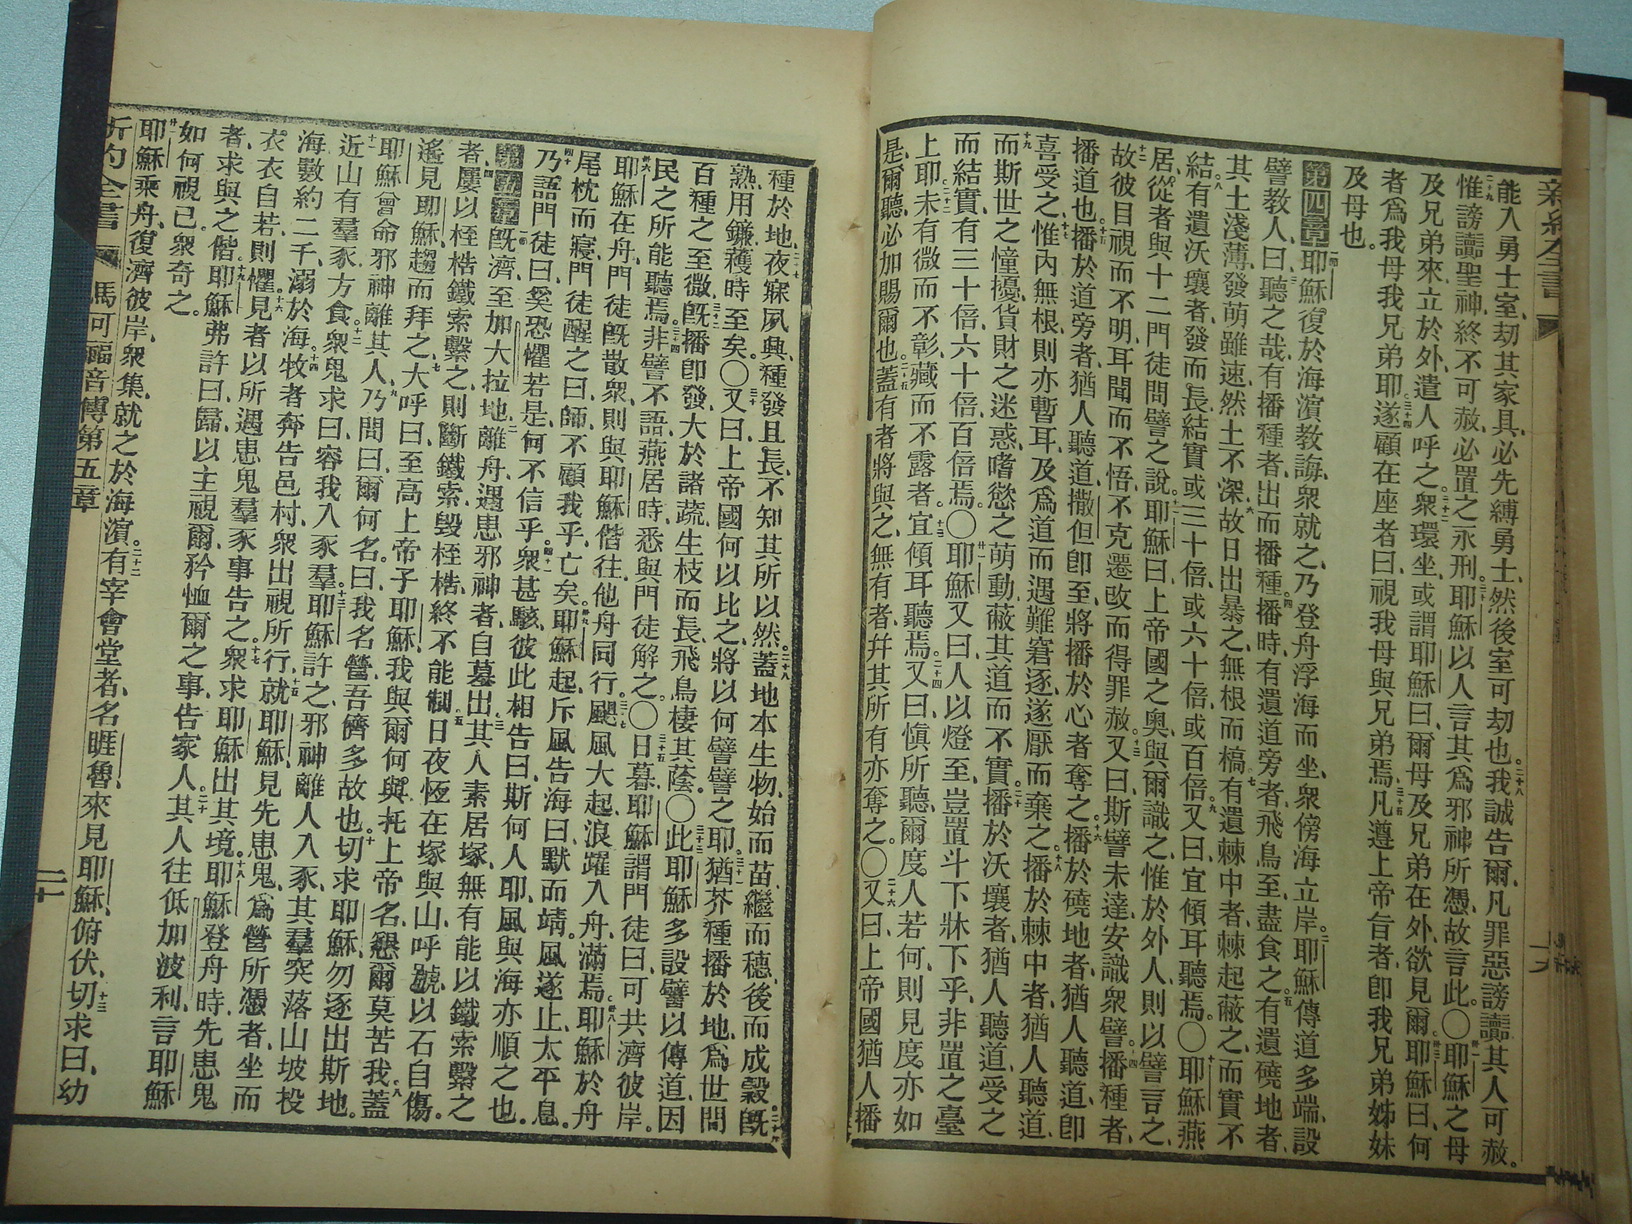 新約全書
能入勇士室、劫其家具、必先縛勇士、然後室可劫也。二十八我誠告爾、凡罪惡謗讟、其人可赦。
二十九惟謗讟聖神、終不可赦、必置之永刑。三十耶穌以人言其爲邪神所憑、故言此。〇卅一耶穌之母
及兄弟來、立於外、遣人呼之。三十二衆環坐、或謂耶穌曰、爾母及兄弟在外、欲見爾。卅三耶穌曰、何
者爲我母我兄弟耶、三十四遂顧在座者曰、視我母與兄弟焉、三十五凡遵上帝旨者、即我兄弟姊妹
及母也。
第四章一節耶穌復於海濱教誨、衆就之、乃登舟浮海而坐、衆傍海立岸。二耶穌傳道多端、設
譬教人、曰、三聽之哉、有播種者、出而播種、四播時、有遺道旁者、飛鳥至、盡食之、五有遺磽地者、
其土淺薄、發萌雖速、然土不深、六故日出暴之、無根而槁、七有遺棘中者、棘起蔽之、而實不
結、八有遺沃壤者、發而長、結實或三十倍、或六十倍、或百倍、九又曰、宜傾耳聽焉。〇十耶穌燕
居、從者與十二門徒、問譬之說、十一耶穌曰、上帝國之奧、與爾識之、惟於外人、則以譬言之、
十二故彼目視而不明、耳聞而不悟、不克遷改而得罪赦、十三又曰、斯譬未達、安識衆譬、十四播種者、
播道也、十五播於道旁者、猶人聽道、撒但即至、將播於心者奪之、十六播於磽地者、猶人聽道、即
喜受之、十七惟內無根、則亦暫耳、及爲道而遇難窘逐、遂厭而棄之、十八播於棘中者、猶人聽道、
十九而斯世之憧擾、貨財之迷惑、嗜慾之萌動、蔽其道而不實、二十播於沃壤者、猶人聽道、受之
而結實、有三十倍、六十倍、百倍焉。〇廿一耶穌又曰、人以燈至、豈置斗下牀下乎、非置之臺
上耶、二十二未有微而不彰、藏而不露者、廿三宜傾耳聽焉、二十四又曰、愼所聽、爾度人若何、則見度亦如
是、爾聽、必加賜爾也、二十五蓋有者、將與之、無有者、幷其所有亦奪之。〇二十六又曰、上帝國猶人播
種於地、二十七夜寐夙興、種發且長、不知其所以然、二十八蓋地本生物、始而苗、繼而穗、後而成穀、二十九既
熟、用鐮穫、時至矣。〇三十又曰、上帝國何以比之、將以何譬譬之耶、三十一猶芥種播於地、爲世間
百種之至微、三十二旣播即發、大於諸蔬、生枝而長、飛鳥棲其蔭。〇三十三此耶穌多設譬以傳道、因
民之所能聽焉、三十四非譬不語、燕居時、悉與門徒解之。〇三十五日暮、耶穌謂門徒曰、可共濟彼岸。
卅六耶穌在舟、門徒旣散衆、則與耶穌偕往、他舟同行、三十七颶風大起、浪躍入舟、滿焉、卅八耶穌於舟
尾枕而寢、門徒醒之曰、師不顧我乎、亡矣、卅九耶穌起、斥風告海曰、默而靖、風遂止、太平息、
四十乃語門徒曰、奚恐懼若是、何不信乎、四十一衆甚駭、彼此相告曰、斯何人耶、風與海亦順之也。
第五章一節旣濟、至加大拉地、二離舟、遇患邪神者、自墓出、三其人素居塚、無有能以鐵索繫之
者、四屢以桎梏鐵索繫之、則斷鐵索、毀桎梏、終不能制、五日夜恆在塚與山、呼號、以石自傷、
六遙見耶穌、趨而拜之、七大呼曰、至高上帝子耶穌、我與爾何與、托上帝名、懇爾莫苦我、八蓋
耶穌曾命邪神離其人、九乃問曰、爾何名、曰、我名營、吾儕多故也、十切求耶穌、勿逐出斯地、
十一近山有羣豕方食、十二衆鬼求曰、容我入豕羣、十三耶穌許之、邪神離人入豕、其羣突落山坡、投
海、數約二千、溺於海、十四牧者奔告邑村、衆出視所行、十五就耶穌、見先患鬼、爲營所憑者、坐而
衣衣自若、則懼、十六見者以所遇患鬼羣豕事告之、十七衆求耶穌出其境、十八耶穌登舟時、先患鬼
者、求與之偕、十九耶穌弗許、曰、歸以主視爾、矜恤爾之事、告家人、二十其人往低加波利、言耶穌
如何視已、衆奇之。
廿一耶穌乘舟、復濟彼岸、衆集、就之於海濱、二十二有宰會堂者、名睚魯、來見耶穌、俯伏、廿三切求曰、幼
新約全書 馬可福音傳第五章 二十